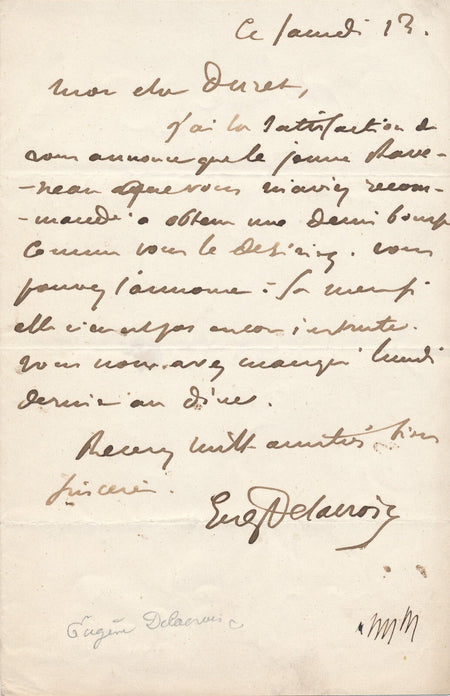 Ce samedi 13.
Mon cher Duret,
J'ai la satisfaction de
vous annoncer que le jeune
que vous m'aviez recom-
-mandé a obtenu une demi bourse
comme vous le désiriez. vous
pouvez l'annoncer à sa mère si
elle n'en est pas encore instruite.
vous nous avez manqué lundi
dernier au dîner.
Recevez mille amitiés bien
sincères.
Eug Delacroix
Eugène Delacroix